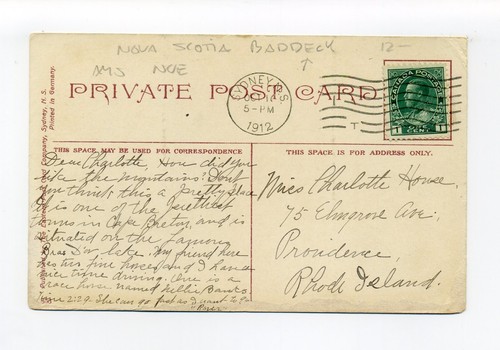 NOVA SCOTIA BADDECK 12-
AMJ NOE
PRIVATE POST CARD
SYDNEY N.S.
OCT
5-PM
1912
CANADA POSTAGE
1 CENT 1
THIS SPACE MAY BE USED FOR CORRESPONDENCE
THIS SPACE IS FOR ADDRESS ONLY.
Company, Sydney, N. S.
Printed in Germany.
Dear Charlotte How did you
like the mountains? Don't
you think this a pretty place
It is one of the prettiest
towns in Cape Breton, and is
situated on the famous
Bras D'or lake. My friend here
has two fine horses and I have a
nice time driving. One is a
race horse named Nellie Banks
time 2:29. She can go fast as I want to go
Miss Charlotte House.
75 Elmgrove Ave.,
Providence,
Rhode Island.